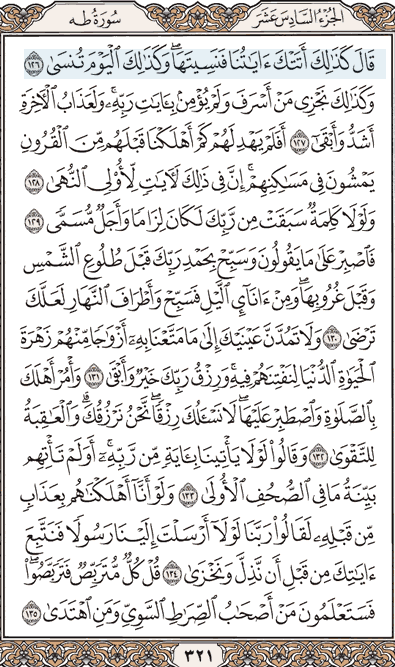 الجزء السادس عشر
سورة طه
قَالَ كَذَٰلِكَ أَتَتْكَ ءَايَٰتُنَا فَنَسِيتَهَا ۖ وَكَذَٰلِكَ ٱلْيَوْمَ تُنسَىٰ ١٢٦
وَكَذَٰلِكَ نَجْزِى مَنْ أَسْرَفَ وَلَمْ يُؤْمِنۢ بِـَٔايَٰتِ رَبِّهِۦ ۚ وَلَعَذَابُ ٱلْأَخِرَةِ
أَشَدُّ وَأَبْقَىٰٓ ١٢٧ أَفَلَمْ يَهْدِ لَهُمْ كَمْ أَهْلَكْنَا قَبْلَهُم مِّنَ ٱلْقُرُونِ
يَمْشُونَ فِى مَسَٰكِنِهِمْ ۗ إِنَّ فِى ذَٰلِكَ لَءَايَٰتٍ لِّأُو۟لِى ٱلنُّهَىٰ ١٢٨
وَلَوْلَا كَلِمَةٌ سَبَقَتْ مِن رَّبِّكَ لَكَانَ لِزَامًا وَأَجَلٌ مُّسَمًّى ١٢٩
فَٱصْبِرْ عَلَىٰ مَا يَقُولُونَ وَسَبِّحْ بِحَمْدِ رَبِّكَ قَبْلَ طُلُوعِ ٱلشَّمْسِ
وَقَبْلَ غُرُوبِهَا ۖ وَمِنْ ءَانَآئِ ٱلَّيْلِ فَسَبِّحْ وَأَطْرَافَ ٱلنَّهَارِ لَعَلَّكَ
تَرْضَىٰ ١٣٠ وَلَا تَمُدَّنَّ عَيْنَيْكَ إِلَىٰ مَا مَتَّعْنَا بِهِۦٓ أَزْوَٰجًا مِّنْهُمْ زَهْرَةَ
ٱلْحَيَوٰةِ ٱلدُّنْيَا لِنَفْتِنَهُمْ فِيهِ ۚ وَرِزْقُ رَبِّكَ خَيْرٌ وَأَبْقَىٰ ١٣١ وَأْمُرْ أَهْلَكَ
بِٱلصَّلَوٰةِ وَٱصْطَبِرْ عَلَيْهَا ۖ لَا نَسْـَٔلُكَ رِزْقًا ۖ نَّحْنُ نَرْزُقُكَ ۗ وَٱلْعَٰقِبَةُ
لِلتَّقْوَىٰ ١٣٢ وَقَالُوا۟ لَوْلَا يَأْتِينَا بِـَٔايَةٍ مِّن رَّبِّهِۦٓ ۚ أَوَلَمْ تَأْتِهِم
بَيِّنَةُ مَا فِى ٱلصُّحُفِ ٱلْأُولَىٰ ١٣٣ وَلَوْ أَنَّآ أَهْلَكْنَٰهُم بِعَذَابٍ
مِّن قَبْلِهِۦ لَقَالُوا۟ رَبَّنَا لَوْلَآ أَرْسَلْتَ إِلَيْنَا رَسُولًا فَنَتَّبِعَ
ءَايَٰتِكَ مِن قَبْلِ أَن نَّذِلَّ وَنَخْزَىٰ ١٣٤ قُلْ كُلٌّ مُّتَرَبِّصٌ فَتَرَبَّصُوا۟ ۖ
فَسَتَعْلَمُونَ مَنْ أَصْحَٰبُ ٱلصِّرَٰطِ ٱلسَّوِىِّ وَمَنِ ٱهْتَدَىٰ ١٣٥
٣٢١